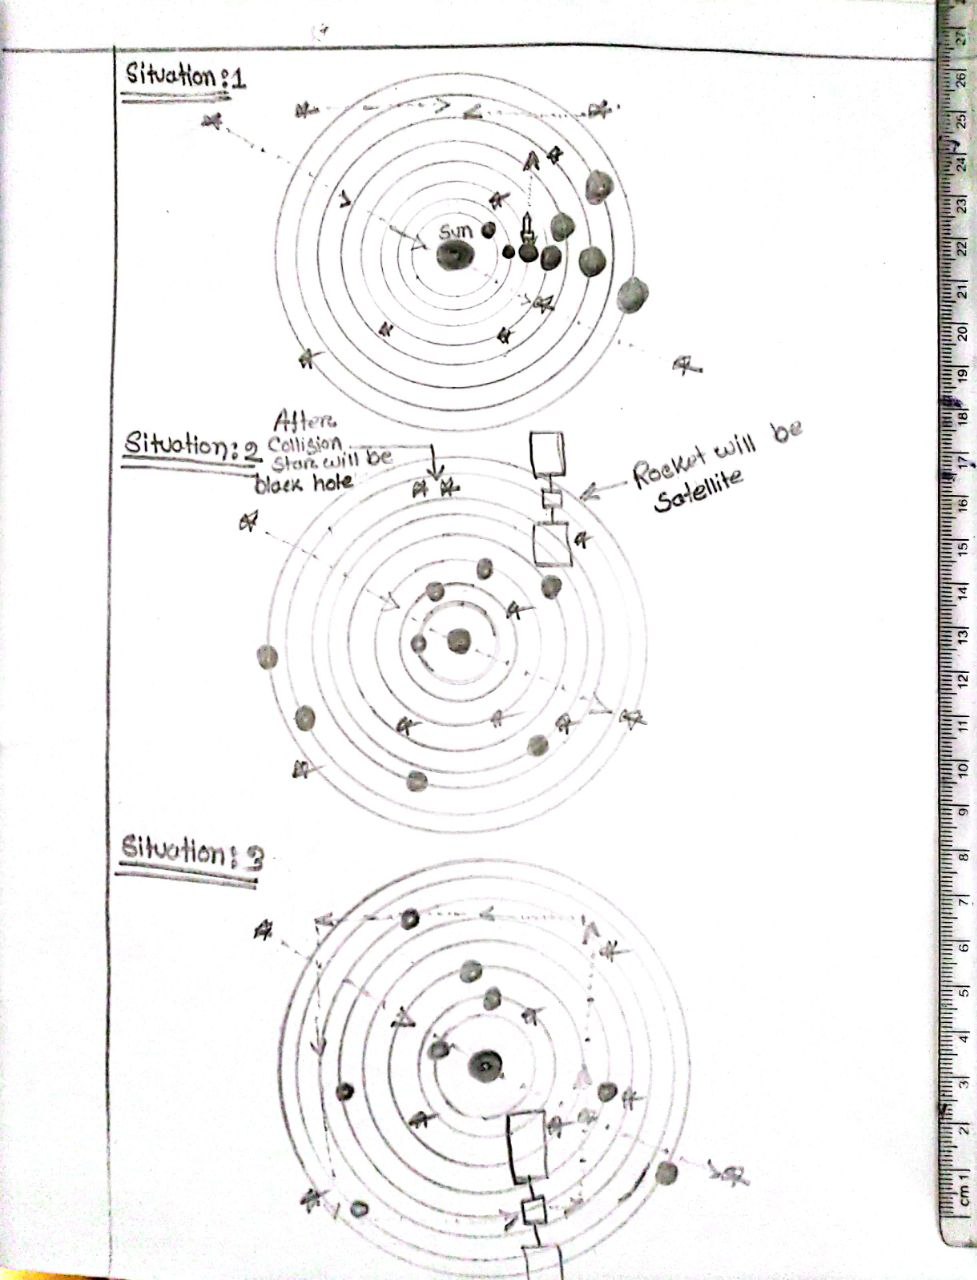 Situation:1
Sun
Situation:2
After
Collision
Stars will be
black hole
Rocket will be
Satellite
Situation:3
27
26
25
24
23
22
21
20
19
18
17
16
15
14
13
12
11
10
9
8
7
6
5
4
3
2
cm 1